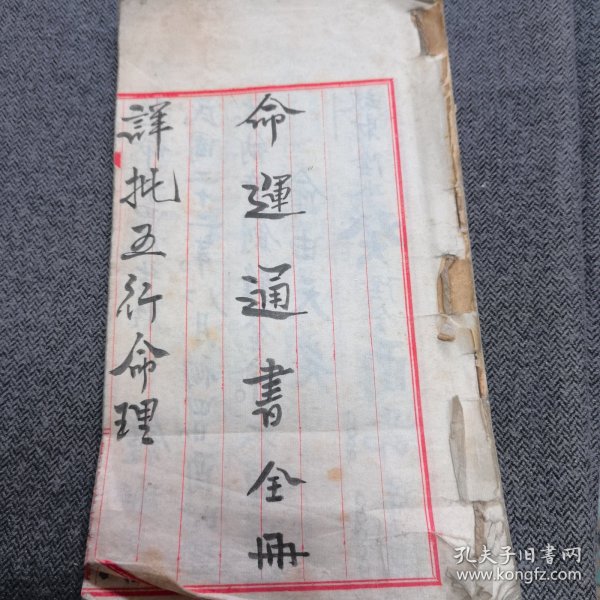 命運通書全冊
詳批五行命理
孔夫子旧书网
www.kongfz.com